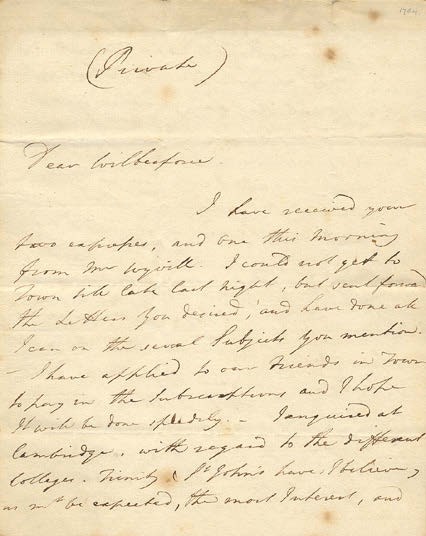 1784
(Private)
Dear Wilberforce.
I have received your
two expresses, and one this morning
from Mr Wyvill. I could not get to
Town till late last night, but sent forward
the Letters you desired, and have done all
I can on the several subjects you mention.
- I have applied to our Friends in Town
to pay in the Subscriptions and I hope
It will be done speedily - I enquired at
Cambridge, with regard to the different
Colleges. Trinity & St John's have, I believe,
as mt be expected, the most Interest, and